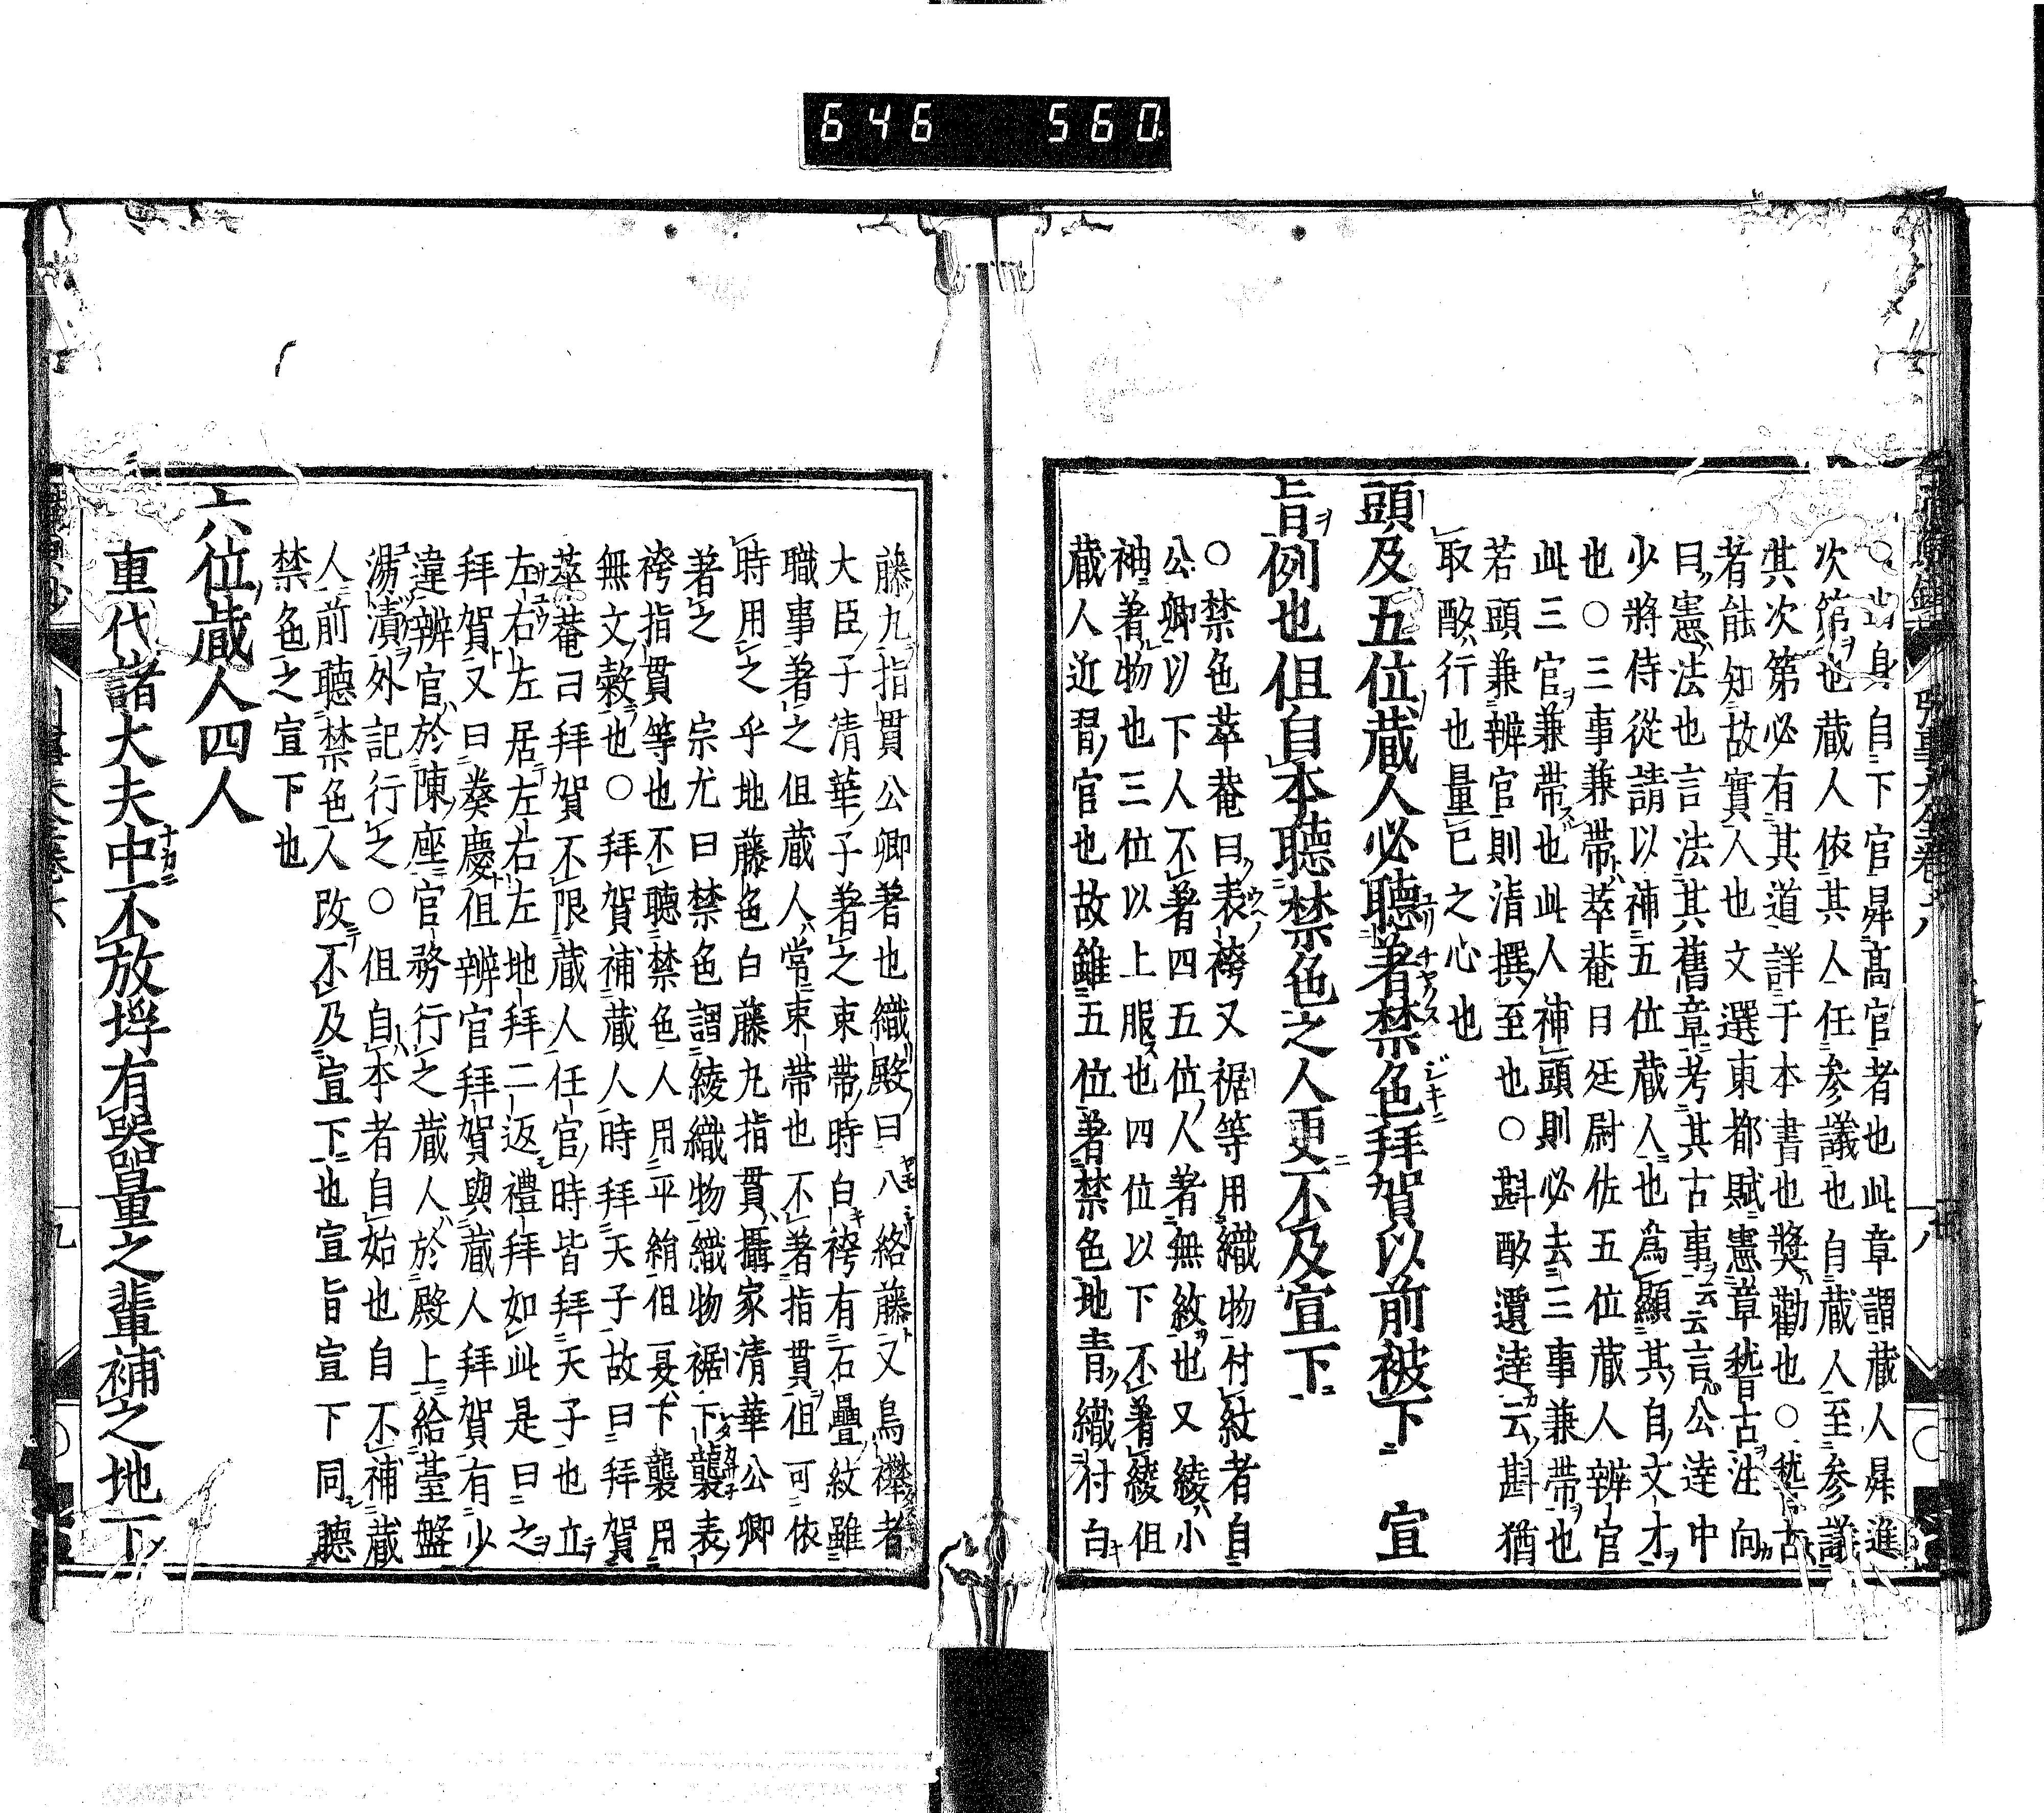 646 560
○出身自下官昇高官者也此章謂蔵人昇進
次第也蔵人依其人任参議也自蔵人至参議
其次第必有其道詳于本書也奨勸也○嵆古
者能知故實人也文選東都賦憲章嵆古注向
曰憲法也言法其舊章考其古事云云言公達中
少將侍從請以補五位蔵人也為顯其自文才
也○三事兼帶萃菴曰廷尉佐五位蔵人辨官
此三官兼帶也此人補頭則必去三事兼帶也
若頭兼辨官則清撰至也○斟酌遵達云斟猶
取酌行也量已之心也
頭及五位蔵人必聽著禁色拜賀以前被下 宣
旨例也但自本聽禁色之人更不及宣下
○禁色萃菴曰表袴又裾等用織物付紋者自
公卿以下人不著四五位人著無紋也又綾小
袖著物也三位以上服也四位以下不著綾但
蔵人近習官也故雖五位著禁色地青織付白
藤丸指貫公卿著也織殿曰八絡藤又鳥襷者
大臣子清華子著之束帶時白袴有石疊紋雖
職事著之但蔵人常束帶也不著指貫但可依
時用之乎地藤色白藤丸指貫攝家清華公卿
著之 宗尤曰禁色謂綾織物織物裾下襲表
袴指貫等也不聽禁色人用平絹但夏下襲用
無文縠也○拜賀補蔵人時拜天子故曰拜賀
萃菴曰拜賀不限蔵人任官時皆拜天子也立
左右左居左右左地拜二返禮拜如此是曰之
拜賀又曰奏慶但辨官拜賀與蔵人拜賀有少
違辨官於陳座官務行之蔵人於殿上給臺盤
湯漬外記行之○但自本者自始也自不補蔵
人前聽禁色人改不及宣下也宣旨宣下同聽
禁色之宣下也
六位蔵人四人
重代諸大夫中不放埓有器量之輩補之地下